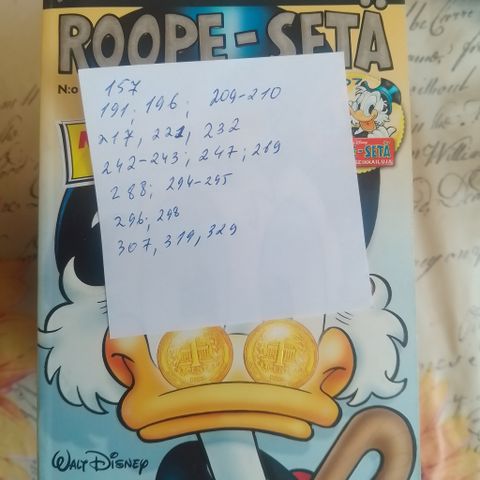 ROOPE-SETÄ
N:o
157
191; 196; 209-210
217, 221, 232
242-243; 247; 219
288; 294-295
296; 298
307, 319, 329
WALT DISNEY